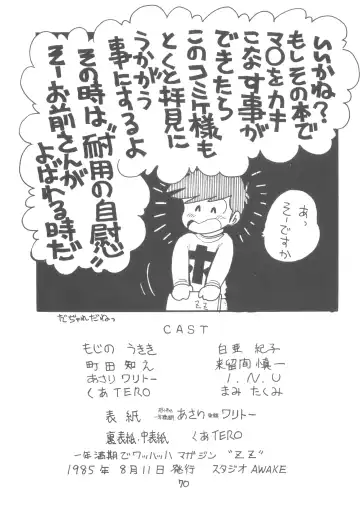 いいかね?
もしその本で
マ〇をカキ
こなす事が
できたら
このコミケ様も
とくと拝見に
うかがう
事にするよ
その時は"耐用の自慰"
そーお前さんが
よばわる時だ
あっ
そーですか
ZZ
だぢゃれだねっ
CAST
もじの うきき
白亜 紀子
町田 知え
来留間 慎一
あさりワリトー
I.N.U
くあTERO
まみ たくみ
表紙 あさり ワリトー
裏表紙・中表紙 くあTERO
一年酒期でワッハッハ マガジン "ZZ"
1985年 8月11日 発行 スタジオAWAKE
70